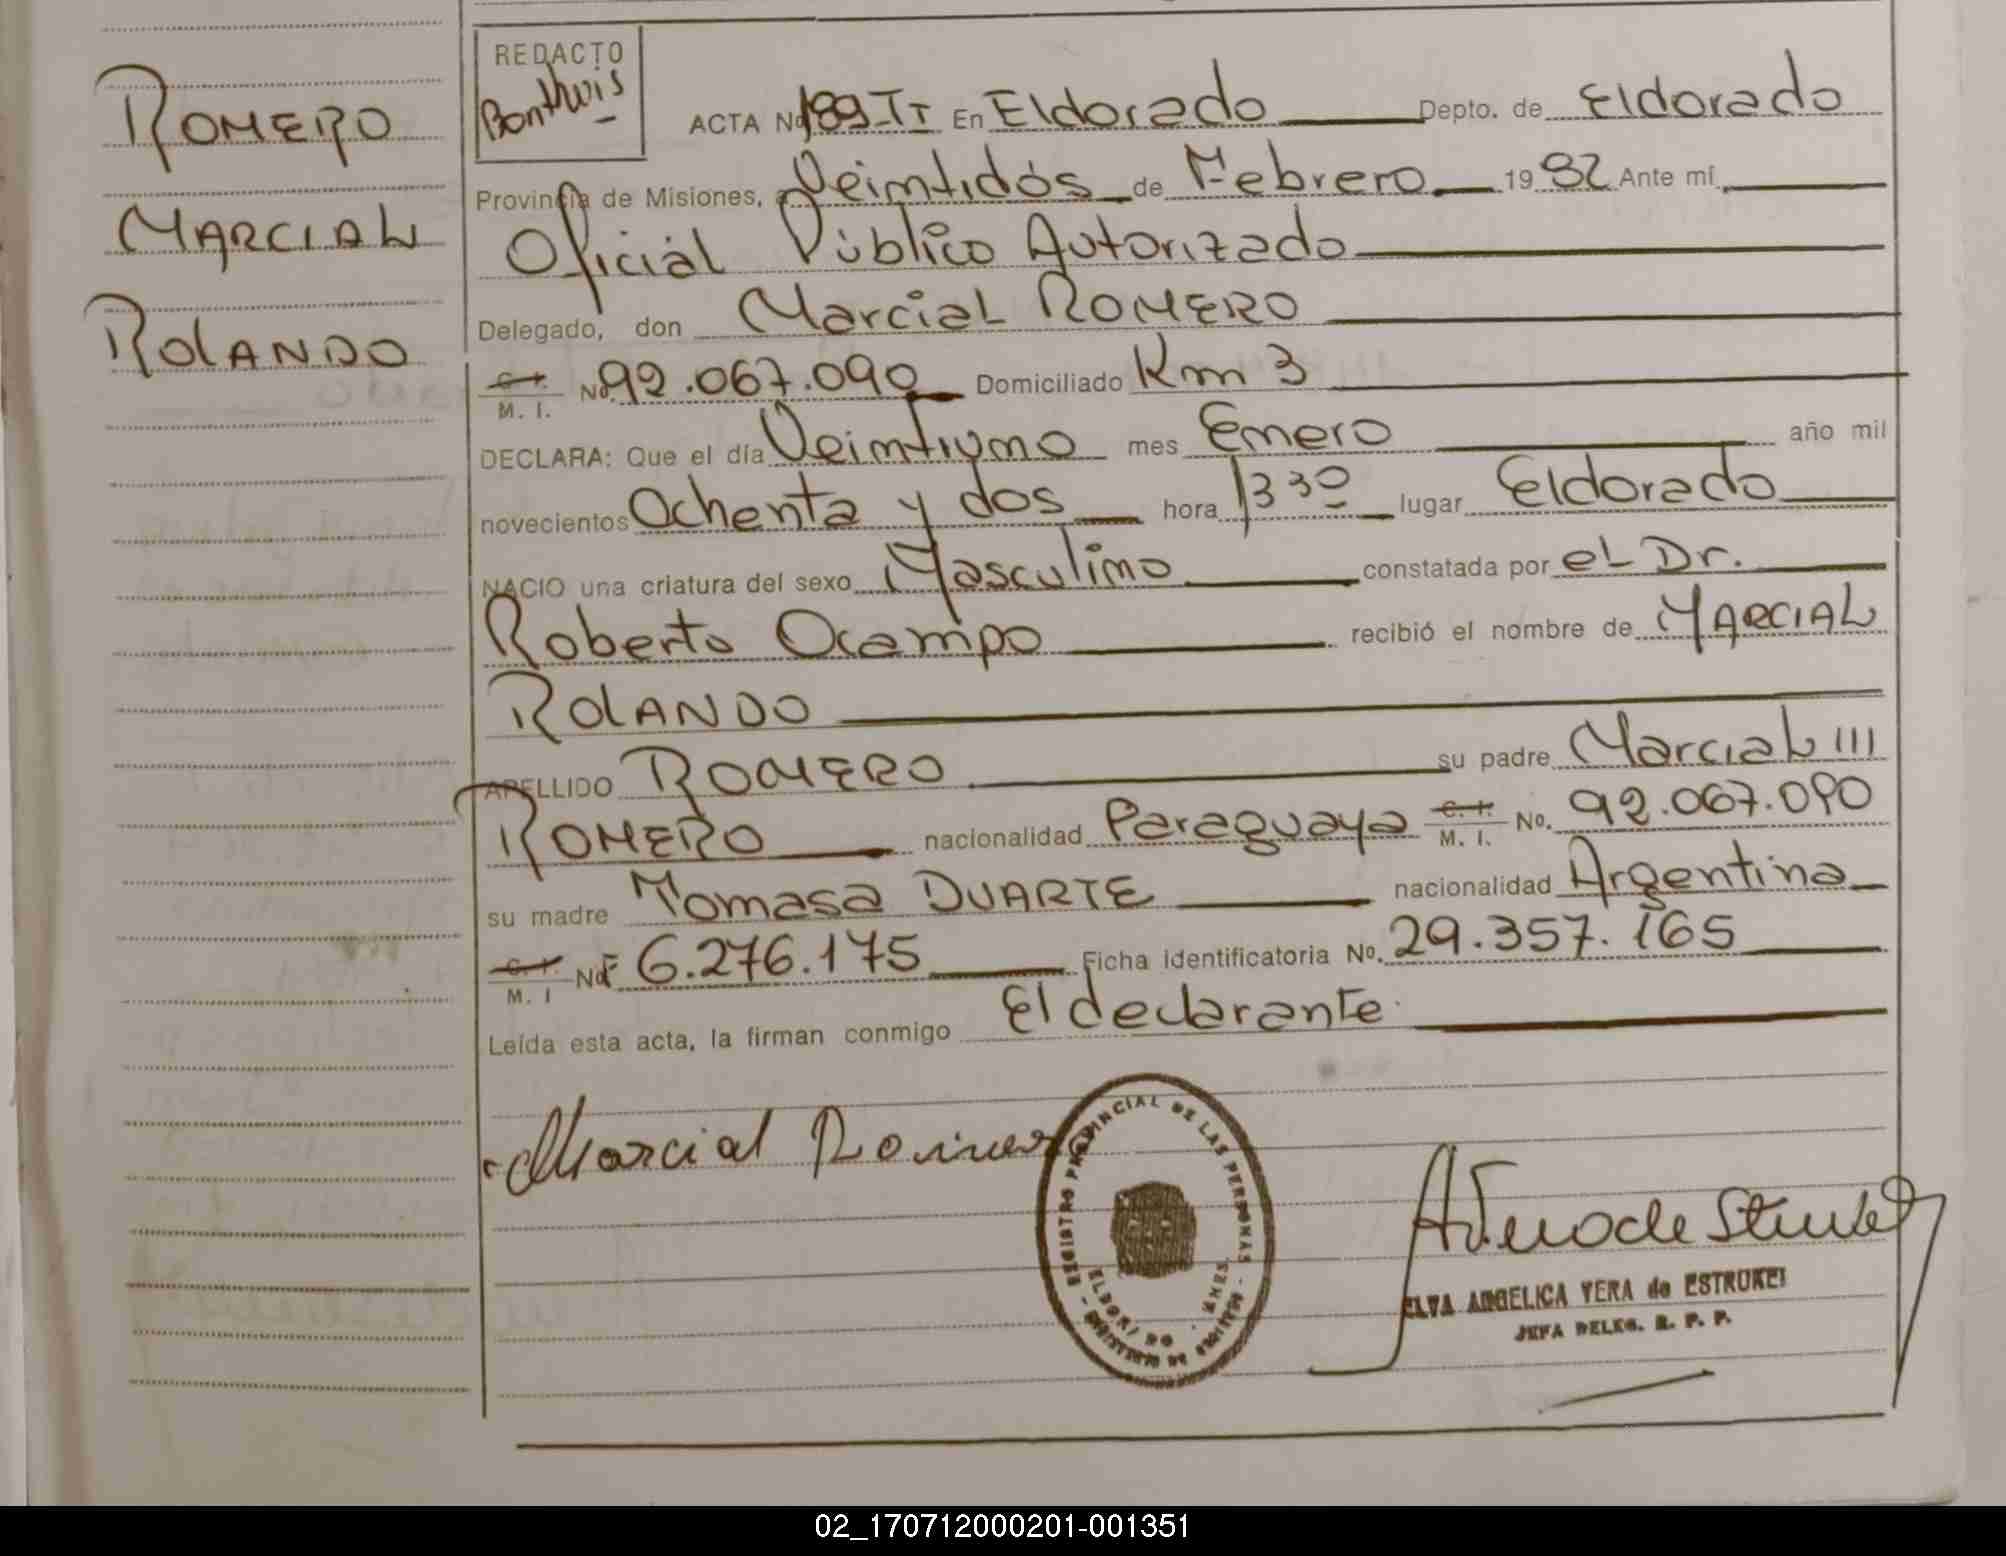 ROMERO
MARCIAL
ROLANDO
REDACTO
Bonthuis
ACTA No 189-TI En Eldorado Depto. de Eldorado
Provincia de Misiones, a Veintidós de Febrero 1982 Ante mí,
Oficial Público Autorizado
Delegado, don Marcial ROMERO
C.I. M. I. No. 92.067.090 Domiciliado Km 3
DECLARA: Que el día Veintiuno mes Enero año mil
novecientos Ochenta y dos hora 1330 lugar Eldorado
NACIO una criatura del sexo Masculino constatada por el Dr.
Roberto Ocampo recibió el nombre de MARCIAL
ROLANDO
APELLIDO ROMERO su padre Marcial III
ROMERO nacionalidad Paraguaya C.I. M. I. No. 92.067.090
su madre Tomasa DUARTE nacionalidad Argentina
C.I. M. I No F 6.276.175 Ficha identificatoria No. 29.357.165
Leída esta acta, la firman conmigo El declarante.
Marcial Romero
REGISTRO PROVINCIAL DE LAS PERSONAS
ELDORADO
ELVA ANGELICA VERA de ESTRUKEI
JEFA DELEG. R. P. P.
02_170712000201-001351